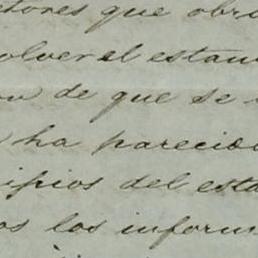 ctores que obra
olver el estan
de que se
ha parecido
ipios del esta
os los inform